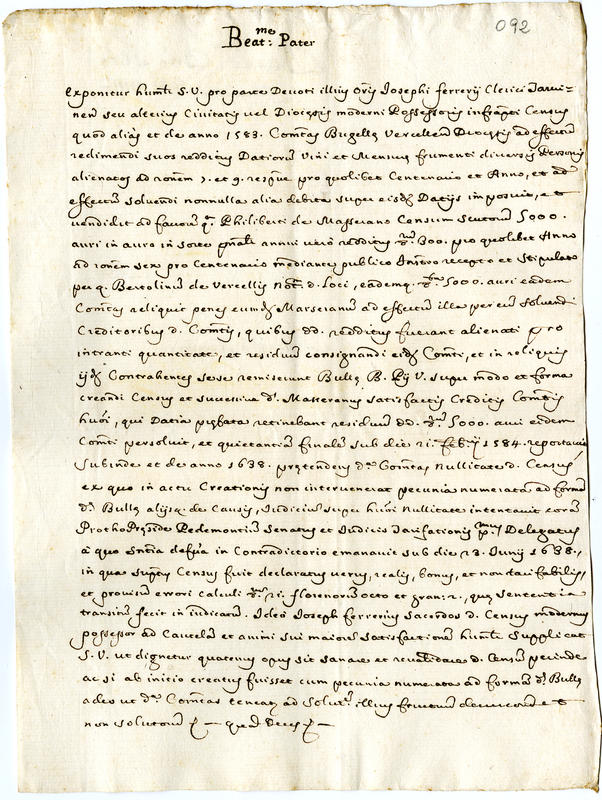 092
Beat.me Pater
Exponitur humil. S. V. pro parte Devoti illius Oris Josephi ferrerij Clerici Tauri=
nen seu alterius Civitatis vel Diocesis moderni Possessoris infrapti Census
quod alias et de anno 1583. Comtas Bugellę Vercellen Diocesis ad effectu
redimendi suos redditus Datiorum Vini et Mensurę frumenti diversis Personis
alienatos ad ronem 7. et 9. respue pro quolibet Centenario et Anno, et ad
effectu solvendi nonnulla alia debita super eisd Datijs imposuit, et
vendidit ad favorem q. Philiberti de Masserano Censum scutorum 5000.
auri in auro in sorte annui vero redditus 300. pro quolibet Anno
ad ronem sex pro Centenario mediante publico Instro recepto et stipulato
per q. Bertolinu de Vercellis Not. d. loci, eademq. 5000. auri eadem
Comtas reliquit penes eumd Masseranu ad effectu illa per eu solvendi
Creditoribus d. Comtis, quibus dd. redditus fuerant alienati pro
intranti quantitate, et residuu consignandi eid Comti, et in reliquis
ijd Contrahentes sese remiserunt Bullę B. Pij V. super modo et forma
creandi Census et sucessive d. Masseranus satisfactis Creditis Comtis
humoi, qui Datia retinebant residuu dd. 5000. auri eidem
Comti persolvit, et quietantia finale sub die 21. feb. 1584. reportavit
Subinde et de anno 1638. prętendens d. Comtas nullitate d. Census
ex quo in actu Creationis non intervenerat pecunia numerata ad forma
d. Bullę alijsq. de Causis, Judiciu super humoi Nullitate intentavit cora
Protho Pręside Pedemontis Senatus et Judicis Delegatus
à quo Sntia in Contradictorio emanavit sub die 23. Junij 1638.,
in qua supti Census fuit declaratus verus, realis, bonus, et non tarifabilis,
et provisu errori calculi 21. florenoru octo et gran: 2., quę sententia
transitu fecit in iudicatu. Ideo Joseph ferrerius Sacerdos d. Census modernus
possessor ad Cautela et animi sui maiore satisfactione humil. supplicat
S. V. ut dignetur quatenus opus sit sanare et revalidare d. Censu perinde
ac si ab initio creatus fuisset cum pecunia numerata ad forma d. Bullę
adeo ut d. Comtas teneat ad solut. illius fructuu decursoru et
non solutoru